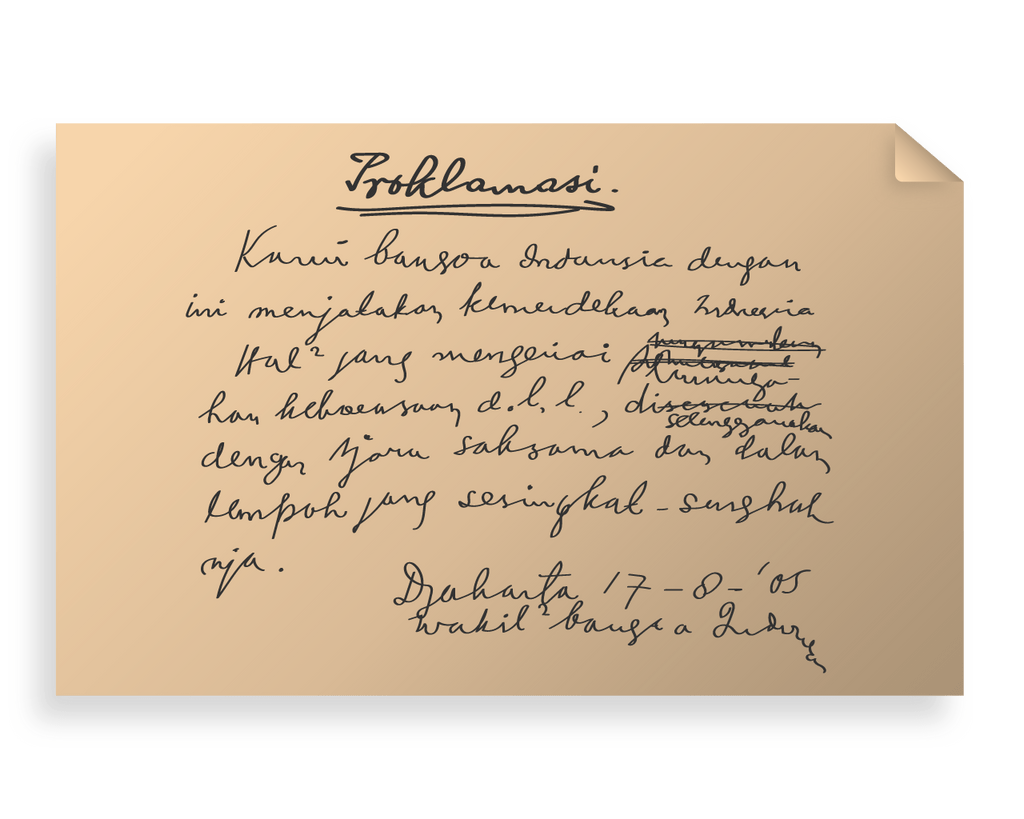 Proklamasi.
Kami bangsa Indonesia dengan
ini menjatakan kemerdekaan Indonesia
Hal² jang mengenai
pemindahan
kekoeasaan d.l.l.,
diselenggarakan
dengan tjara saksama dan dalam
tempoh jang sesingkat-singkat
nja.
Djakarta 17-8-'05
wakil² bangsa Indonesia